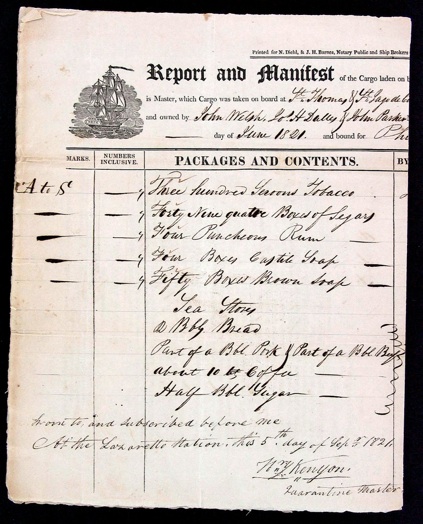 Printed for N. Diehl, & J. H. Barnes, Notary Public and Ship Brokers
Report and Manifest of the Cargo laden on b
is Master, which Cargo was taken on board at St. Thomas & St. Jago de
and owned by John Welsh, Jos. H Dulles & John Parker
day of June 1821. and bound for Phi
MARKS. NUMBERS INCLUSIVE. PACKAGES AND CONTENTS. BY
A to S Three hundred Seroons Tobacco
Forty Nine quarter Boxes of Segars
Four Puncheons Rum
Four Boxes Castile Soap
Fifty Boxes Brown Soap
Sea Stores
Bbls Bread
Part of a Bbl. Pork & Part of a Bbl Beef
about 10 lb Coffee
Half Bbl Sugar
Sworn to, and subscribed before me
At the Lazaretto Station, this 5th day of Sep 1821.
Kenyon.
Quarantine Master